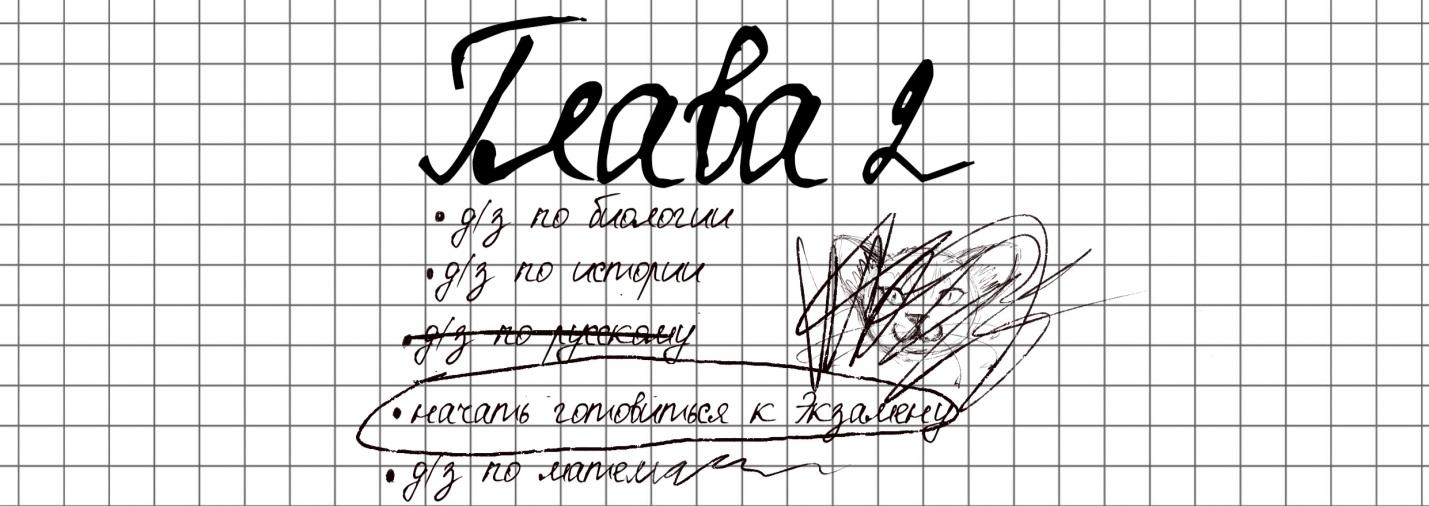 Глава 2
• д/з по биологии
• д/з по истории
• д/з по русскому
• начать готовиться к Экзамену
• д/з по матема